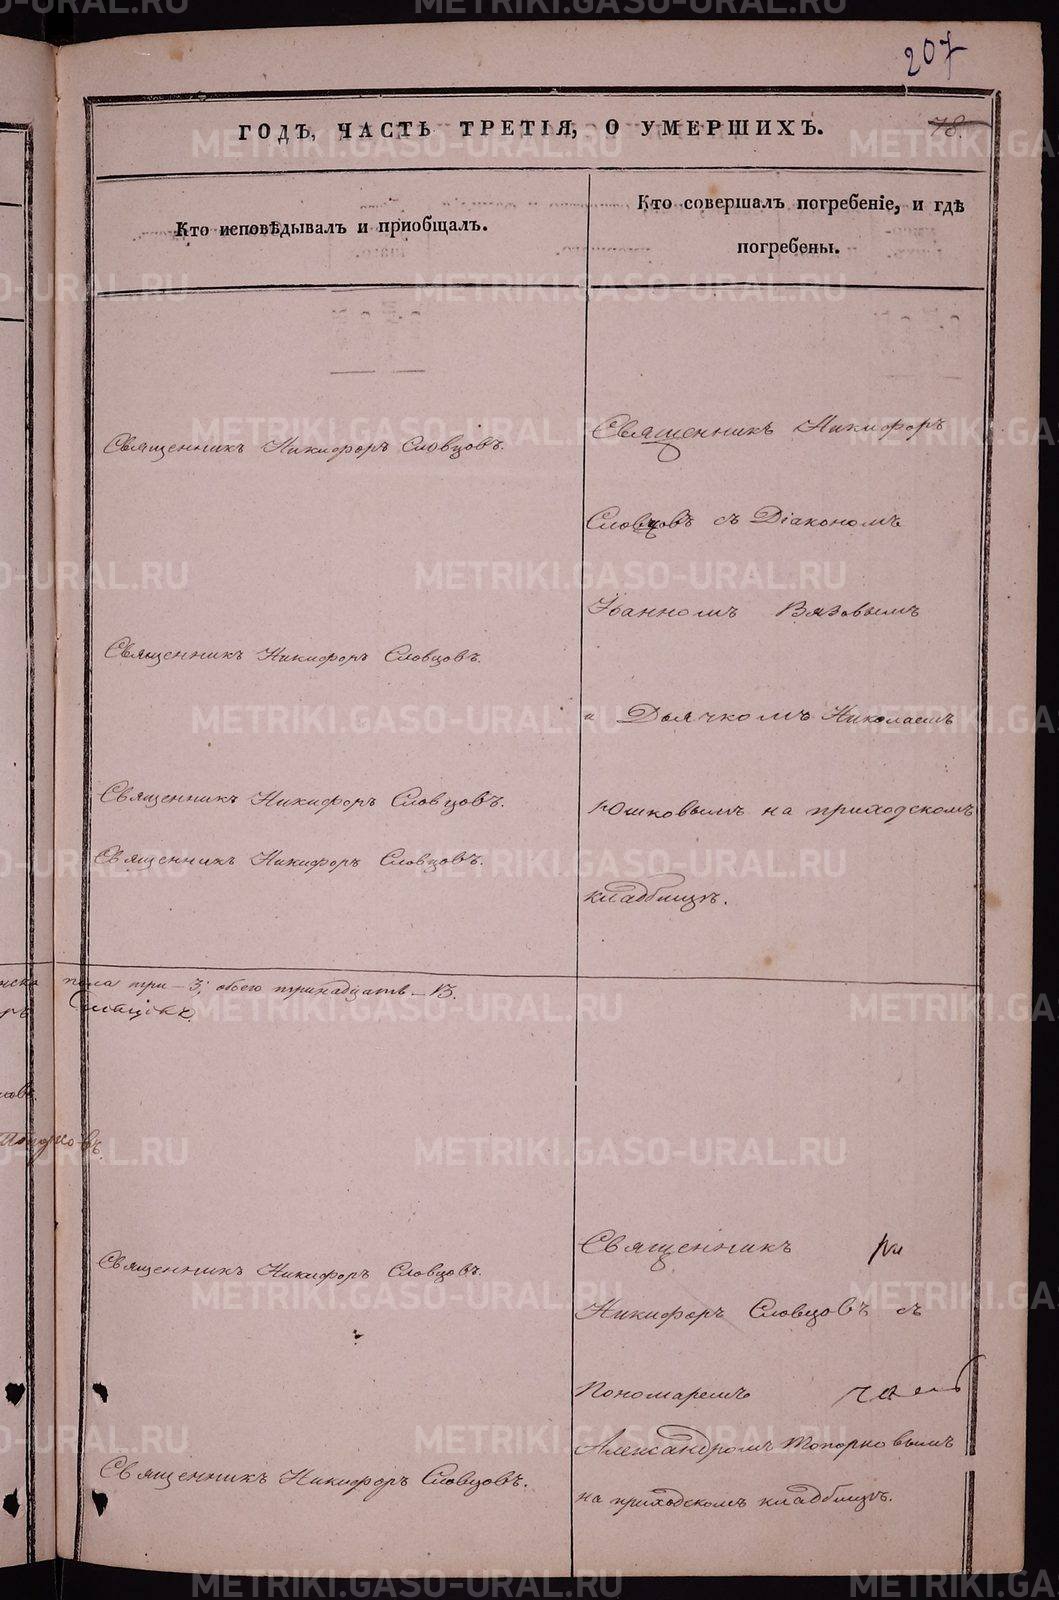 207
ГОДЪ, ЧАСТЬ ТРЕТІЯ, О УМЕРШИХЪ.
78.
Кто исповѣдывалъ и приобщалъ.
Кто совершалъ погребеніе, и гдѣ
погребены.
Священникъ Никифоръ Словцовъ.
Священникъ Никифоръ Словцовъ.
Священникъ Никифоръ Словцовъ.
Священникъ Никифоръ Словцовъ.
Священникъ Никифоръ
Словцовъ съ Діакономъ
Іоанномъ Вязовымъ
и Дьячкомъ Николаемъ
Юшковымъ на приходскомъ
кладбищѣ.
пола три – 3; обоего тринадцать – 13.
Священникъ Никифоръ Словцовъ.
Священникъ Никифоръ Словцовъ.
Священникъ
Никифоръ Словцовъ съ
Пономаремъ
Александромъ Топорковымъ
на приходскомъ кладбищѣ.
METRIKI.GASO-URAL.RU